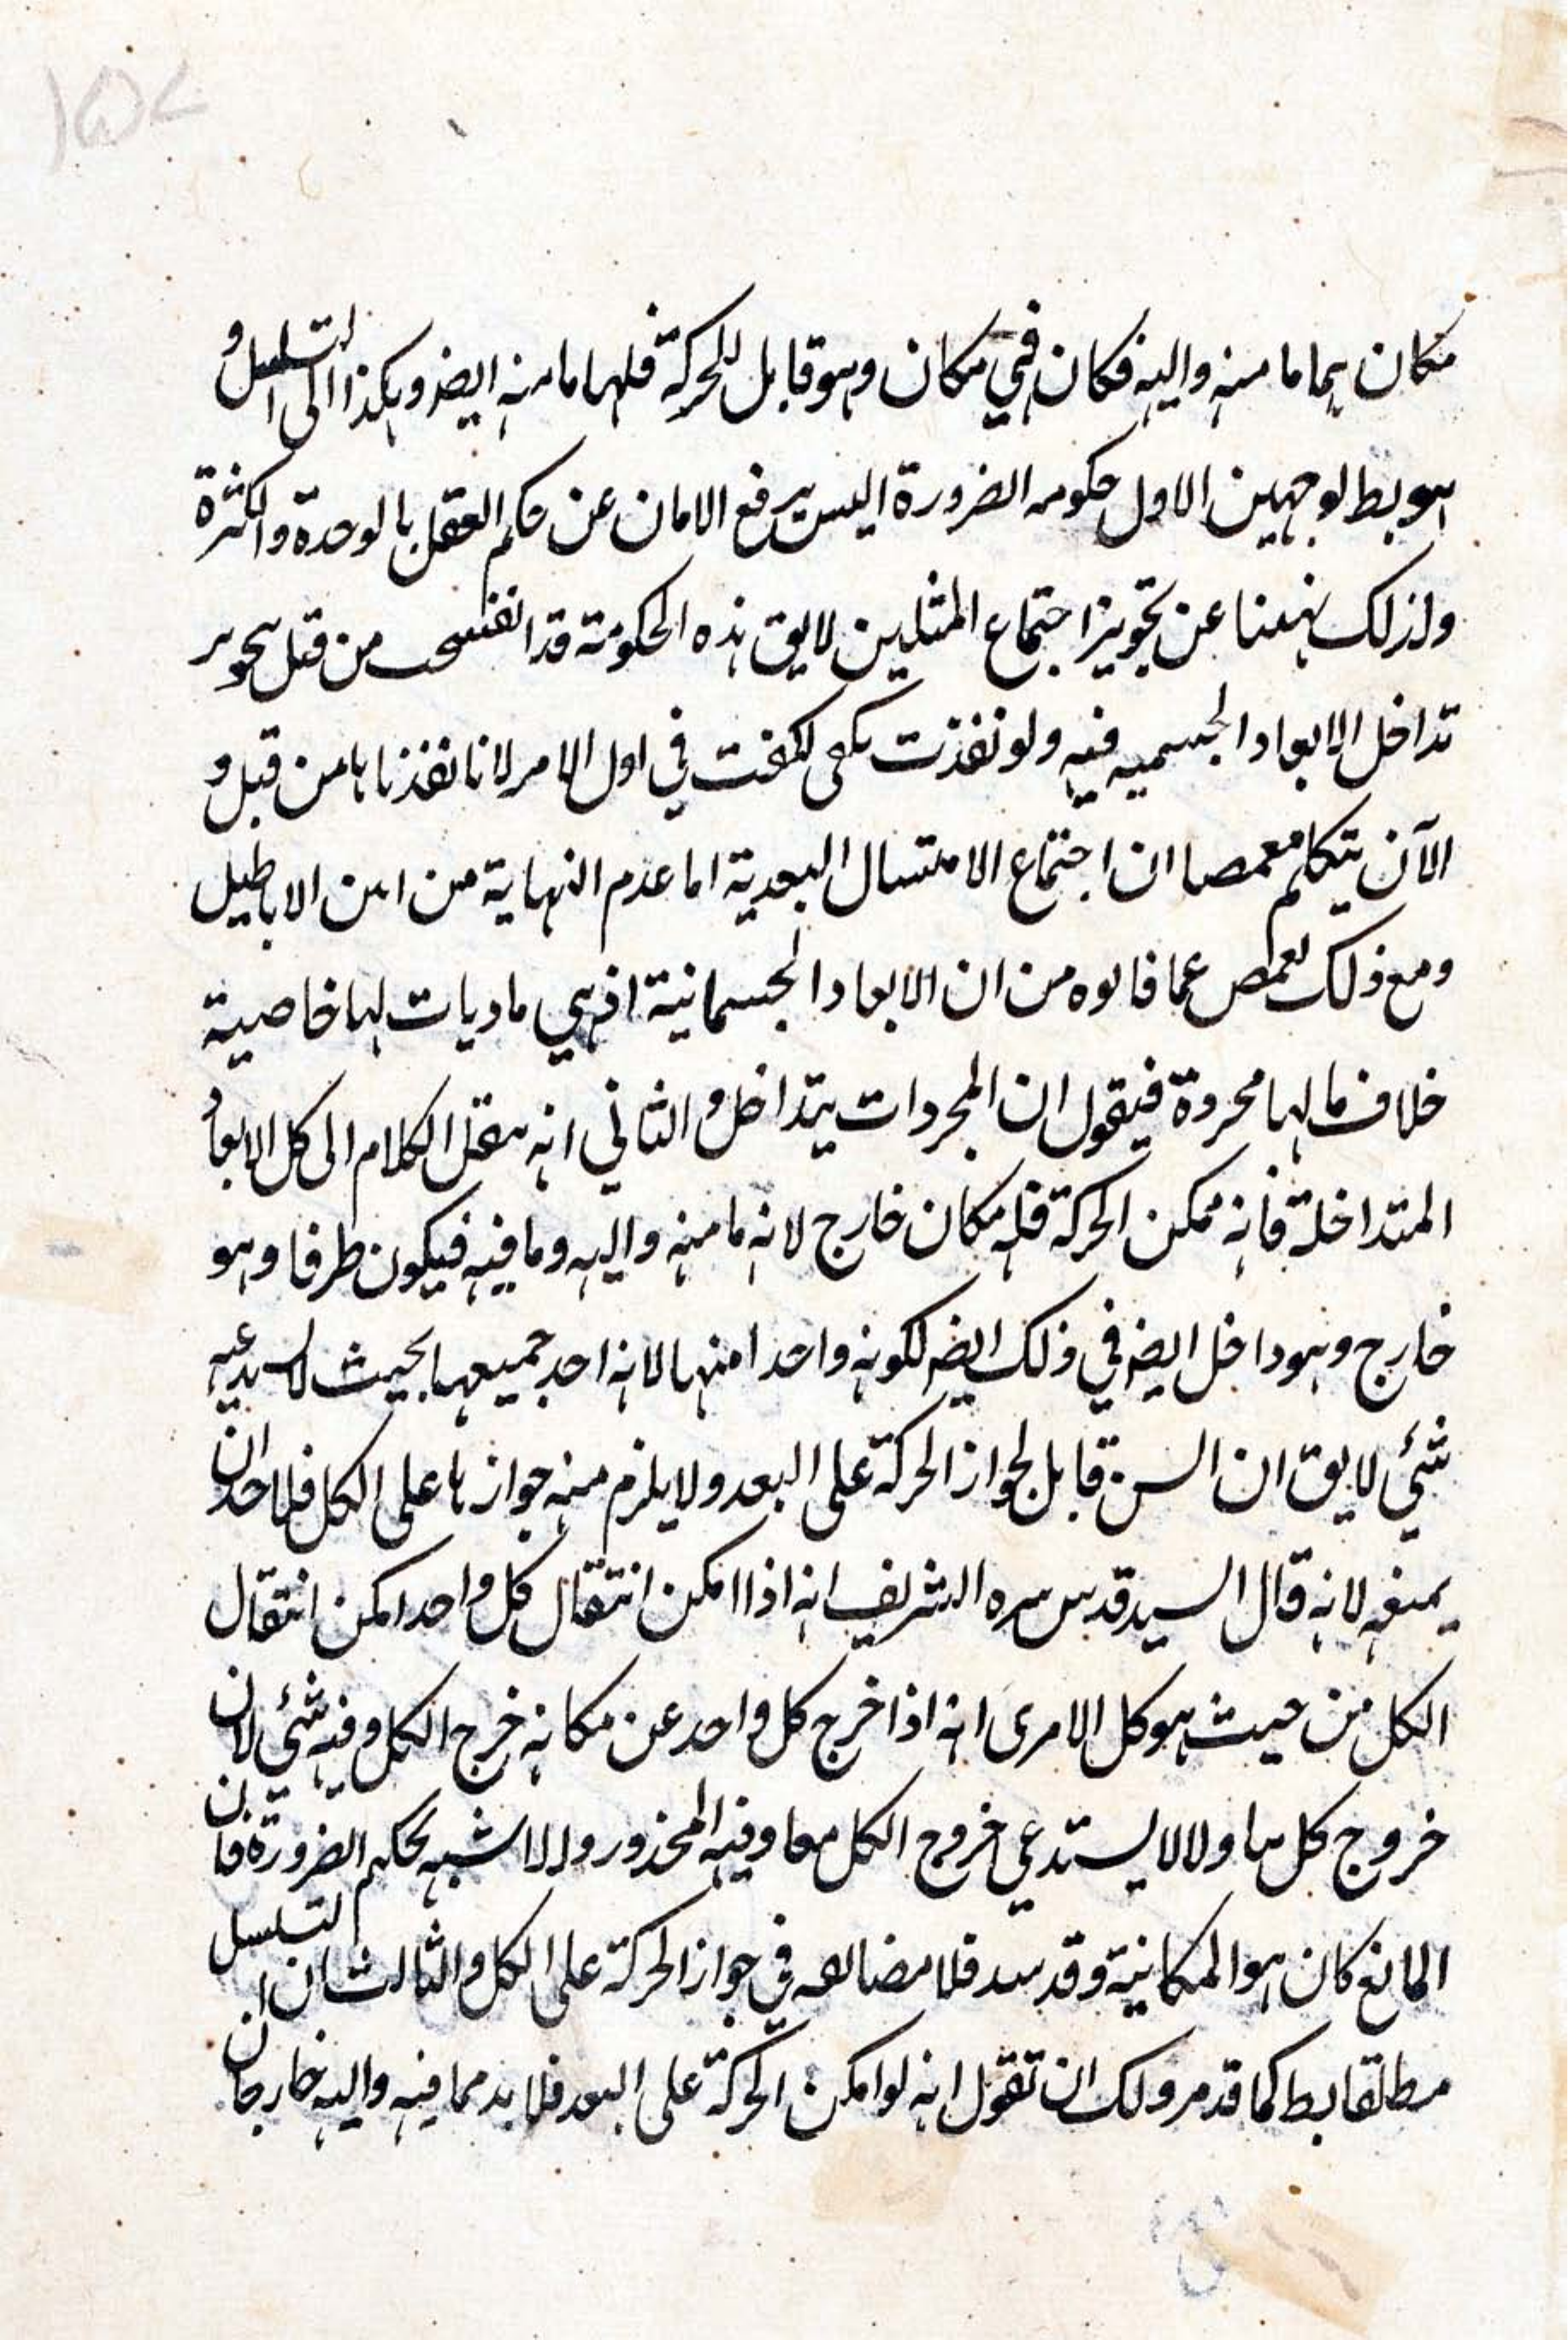 مكان بهما ما منه واليه فكان ففي مكان وهو قابل للحركة فلهما ما منه ايضر وهكذا الى التسلسل و
هو بط لوجهين الاول حكومه الضرورة اليس يرفع الامان عن حكم العقل بالوحدة والكثرة
ولذلك نهينا عن تجويز اجتماع المثلين لا يق هذه الحكومة قد انفسخت من قبل تجوير
تداخل الابعاد الجسميه فيه ولو نفذت لكفت في اول الامر لانا نفذناها من قبل و
الآن يتكلم ان اجتماع الامتسال البعدية اما عدم النهاية من الاباطيل
ومع ذلك عما قالوه من ان الابعاد الجسمانية اذ هي ماديات لها خاصية
خلاف ما لها مجردة فيقول ان المجردات يتداخل والثاني انه ننقل الكلام الى كل الابعاد
المتداخلة فانه ممكن الحركة فله مكان خارج لانه ما منه واليه وما فيه فيكون طرفا وهو
خارج وهو داخل ايضه في ذلك ايضه لكونه واحدا منها لانه احد جميعها بحيث لا
شئي لا يق ان السن قابل لجواز الحركة على البعد ولا يلزم منه جوازها على الكل فلاحد ان
يمنعه لانه قال السيد قدس سره الشريف انه اذا امكن انتقال كل واحد امكن انتقال
الكل من حيث هو كل الا مرى انه اذا خرج كل واحد عن مكانه خرج الكل وفيه شئي لان
خروج كل ولا لا يستدعي خروج الكل معا وفيه المحذور اشبه بحكم الضرورة فان
المانع كان هو المكانية وقد فلا في جواز الحركة على الكل والثالث ان التسلسل
مطلقا بط كما قد مر ولك ان تقول انه لو امكن الحركة على البعد فلا بد مما فيه واليه خارجان